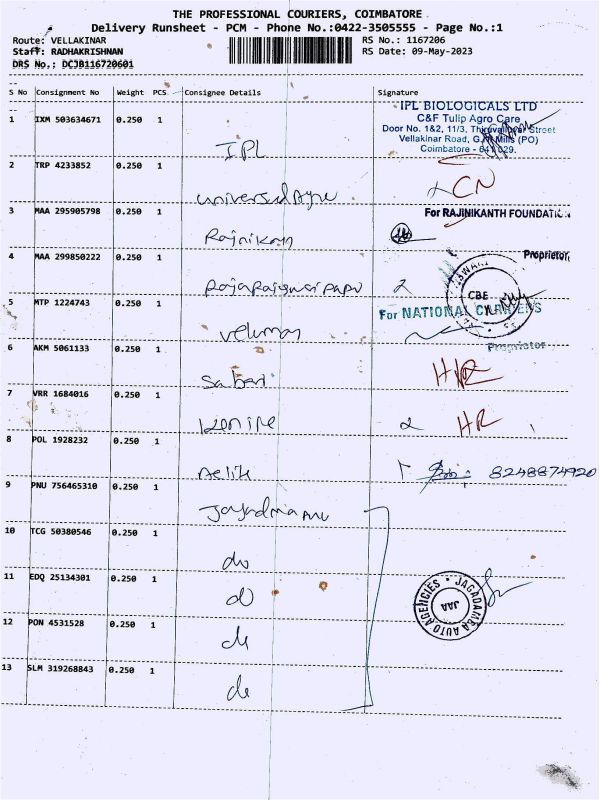 THE PROFESSIONAL COURIERS, COIMBATORE
Delivery Runsheet - PCM - Phone No.:0422-3505555 - Page No.:1
Route: VELLAKINAR RS No.: 1167206
Staff: RADHAKRISHNAN RS Date: 09-May-2023
DRS No.: DCJB116720601
S No Consignment No Weight PCS Consignee Details Signature
IPL BIOLOGICALS LTD
C&F Tulip Agro Care
Door No. 1&2, 11/3, Thiruvalluvar Street
Vellakinar Road, G.N Mills (PO)
Coimbatore - 641 029.
1 IXM 503634671 0.250 1 IPL
2 TRP 4233852 0.250 1 CN
3 MAA 295905798 0.250 1 Rajnikan
For RAJINIKANTH FOUNDATION
Proprietor
4 MAA 299850222 0.250 1
CBE
5 MTP 1224743 0.250 1 Velumas
For NATIONAL CARRIERS
Proprietor
6 AKM 5061133 0.250 1 Sabari
7 VRR 1684016 0.250 1 HR
8 POL 1928232 0.250 1 8248874920
9 PNU 756465310 0.250 1
10 TCG 50380546 0.250 1 do
11 EDQ 25134301 0.250 1 do
12 PON 4531528 0.250 1 do
13 SLM 319268843 0.250 1 do
JAGADAMBA AUTO AGENCIES
JAA